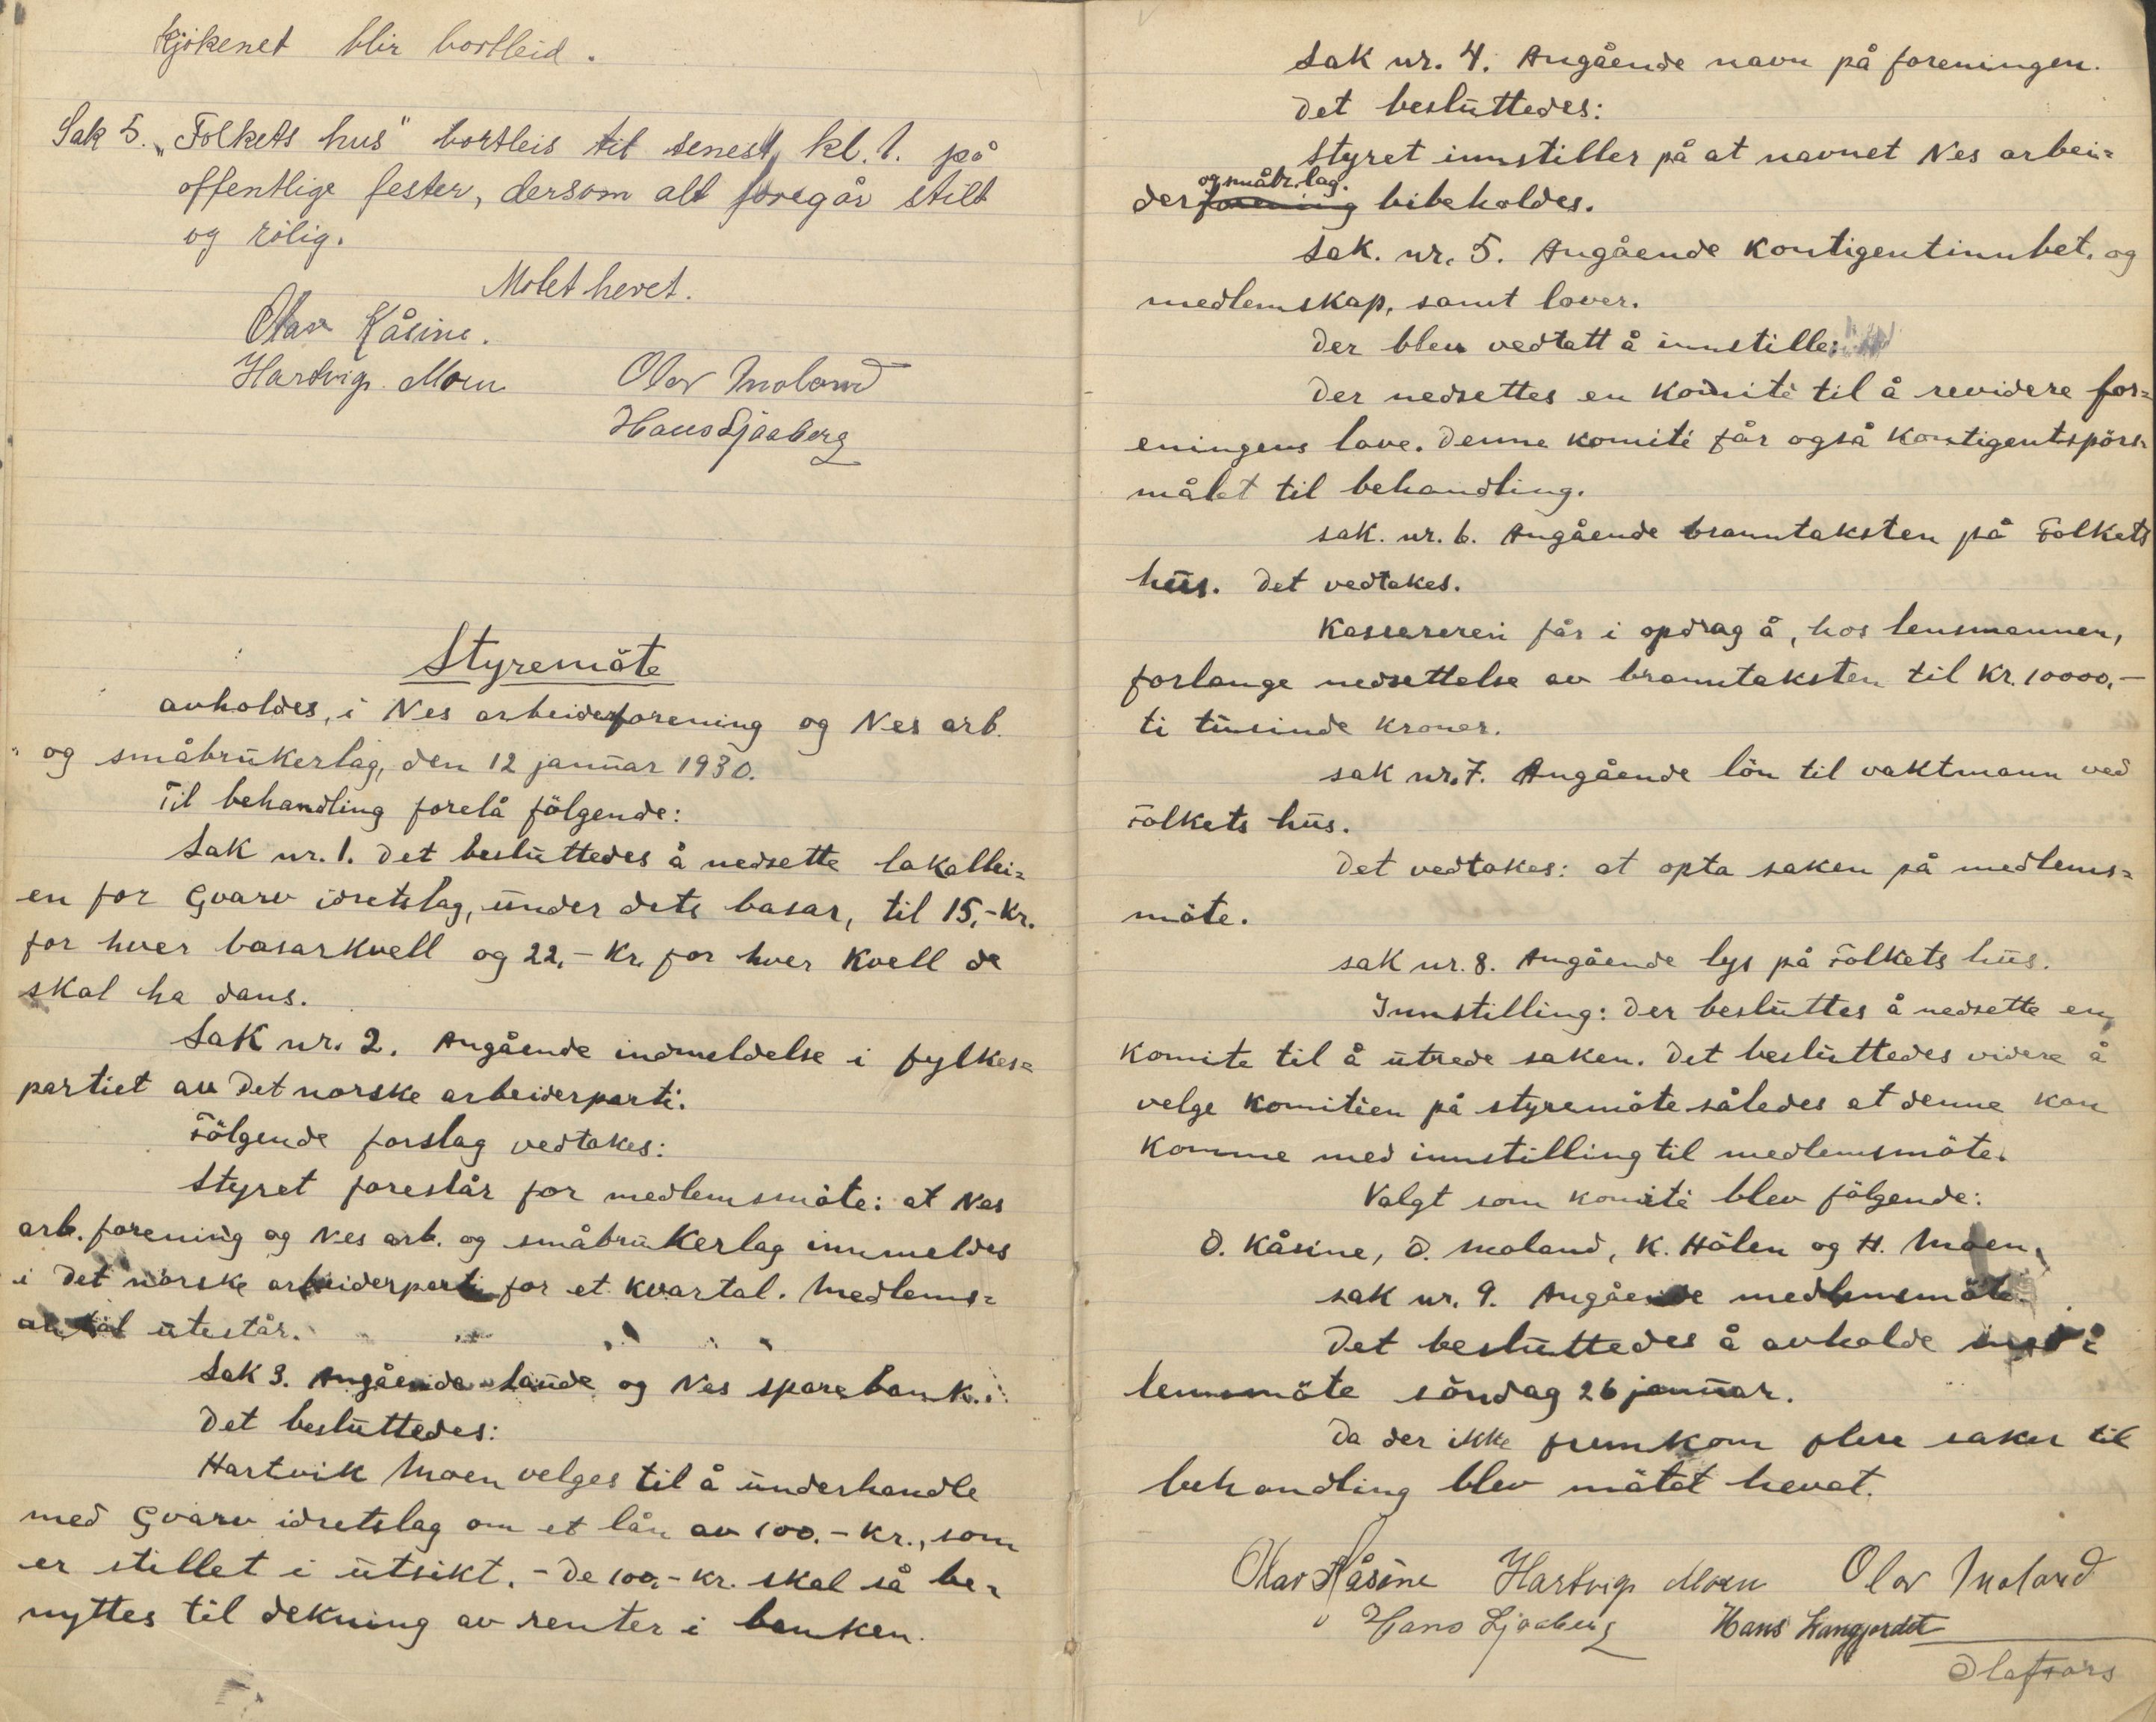 Kjökenet blir bortleid.
Sak 5. „Folkets hus" bortleis til senest kl. 1. på
offentlige fester, dersom alt foregår stilt
og rolig.
Motet hevet.
Olav Kåsine.
Hartvig Moen Olav Moland
Hans Ljaaberg
Styremöte
avholdes, i Nes arbeiderforening og Nes arb.
og småbrukerlag, den 12 januar 1930.
Til behandling forelå fölgende:
Sak nr. 1. Det besluttedes å nedsette lokallei=
en for Gvarv idretslag, under dets basar, til 15,- Kr.
for hver basarkvell og 22,- Kr. for hver kvell de
skal ha dans.
Sak nr. 2. Angående indmeldelse i fylkes=
partiet av Det norske arbeiderparti.
Fölgende forslag vedtakes:
Styret foreslår for medlemsmöte: at Nes
arb. forening og Nes arb. og småbrukerlag innmeldes
i Det norske arbeiderparti for et kvartal. Medlems=
antal utestår.
Sak 3. Angående Lande og Nes sparebank.
Det besluttedes:
Hartvik Moen velges til å underhandle
med Gvarv idretslag om et lån av 100.- Kr., som
er stillet i utsikt. - De 100,- Kr. skal så be=
nyttes til dekning av renter i banken.
Sak nr. 4. Angående navn på foreningen.
Det besluttedes:
Styret innstiller på at navnet Nes arbei=
og småbr. lag.
derforening bibeholdes.
Sak. nr. 5. Angående kontigentinnbet. og
medlemskap, samt lover.
Der blev vedtatt å innstille:
Der nedsettes en komité til å revidere for=
eningens love. Denne komité får også kontigentspörs=
målet til behandling.
sak. nr. 6. Angående branntaksten på Folkets
hus. Det vedtakes.
Kassereren får i opdrag å, hos lensmannen,
forlange nedsettelse av branntaksten til Kr. 10000,-
ti tusinde kroner.
sak nr. 7. Angående lön til vaktmann ved
Folkets hus.
Det vedtakes: at opta saken på medlems=
möte.
sak nr. 8. Angående lys på Folkets hus.
Innstilling: Der besluttes å nedsette en
komite til å utrede saken. Det besluttedes videre å
velge komitéen på styremöte således at denne kan
komme med innstilling til medlemsmöte.
Valgt som komité blev fölgende:
O. Kåsine, O. Moland, K. Hölen og H. Moen.
sak nr. 9. Angående medlemsmöte.
Det besluttedes å avholde med=
lemsmöte söndag 26 januar.
Da der ikke fremkom flere saker til
behandling blev mötet hevet.
Olav Kåsine Hartvig Moen Olav Moland
Hans Ljaaberg Hans Langjordet